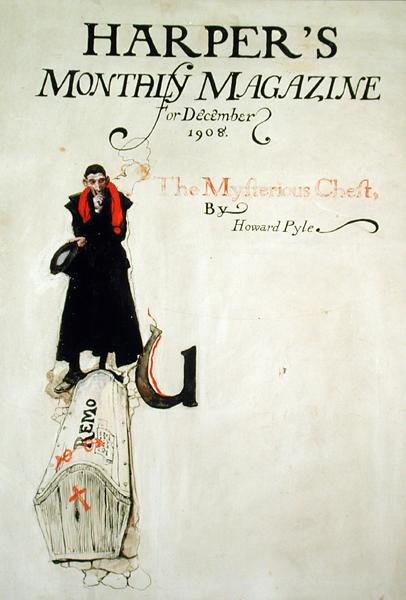 HARPER'S
MONTHLY MAGAZINE
for December
1908.
The Myſterious Cheſt,
By
Howard Pyle
U
REMO